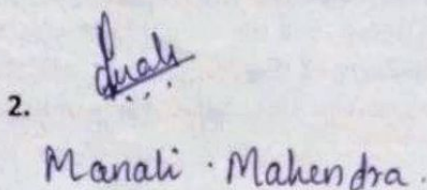 2.
Manali . Mahendra .